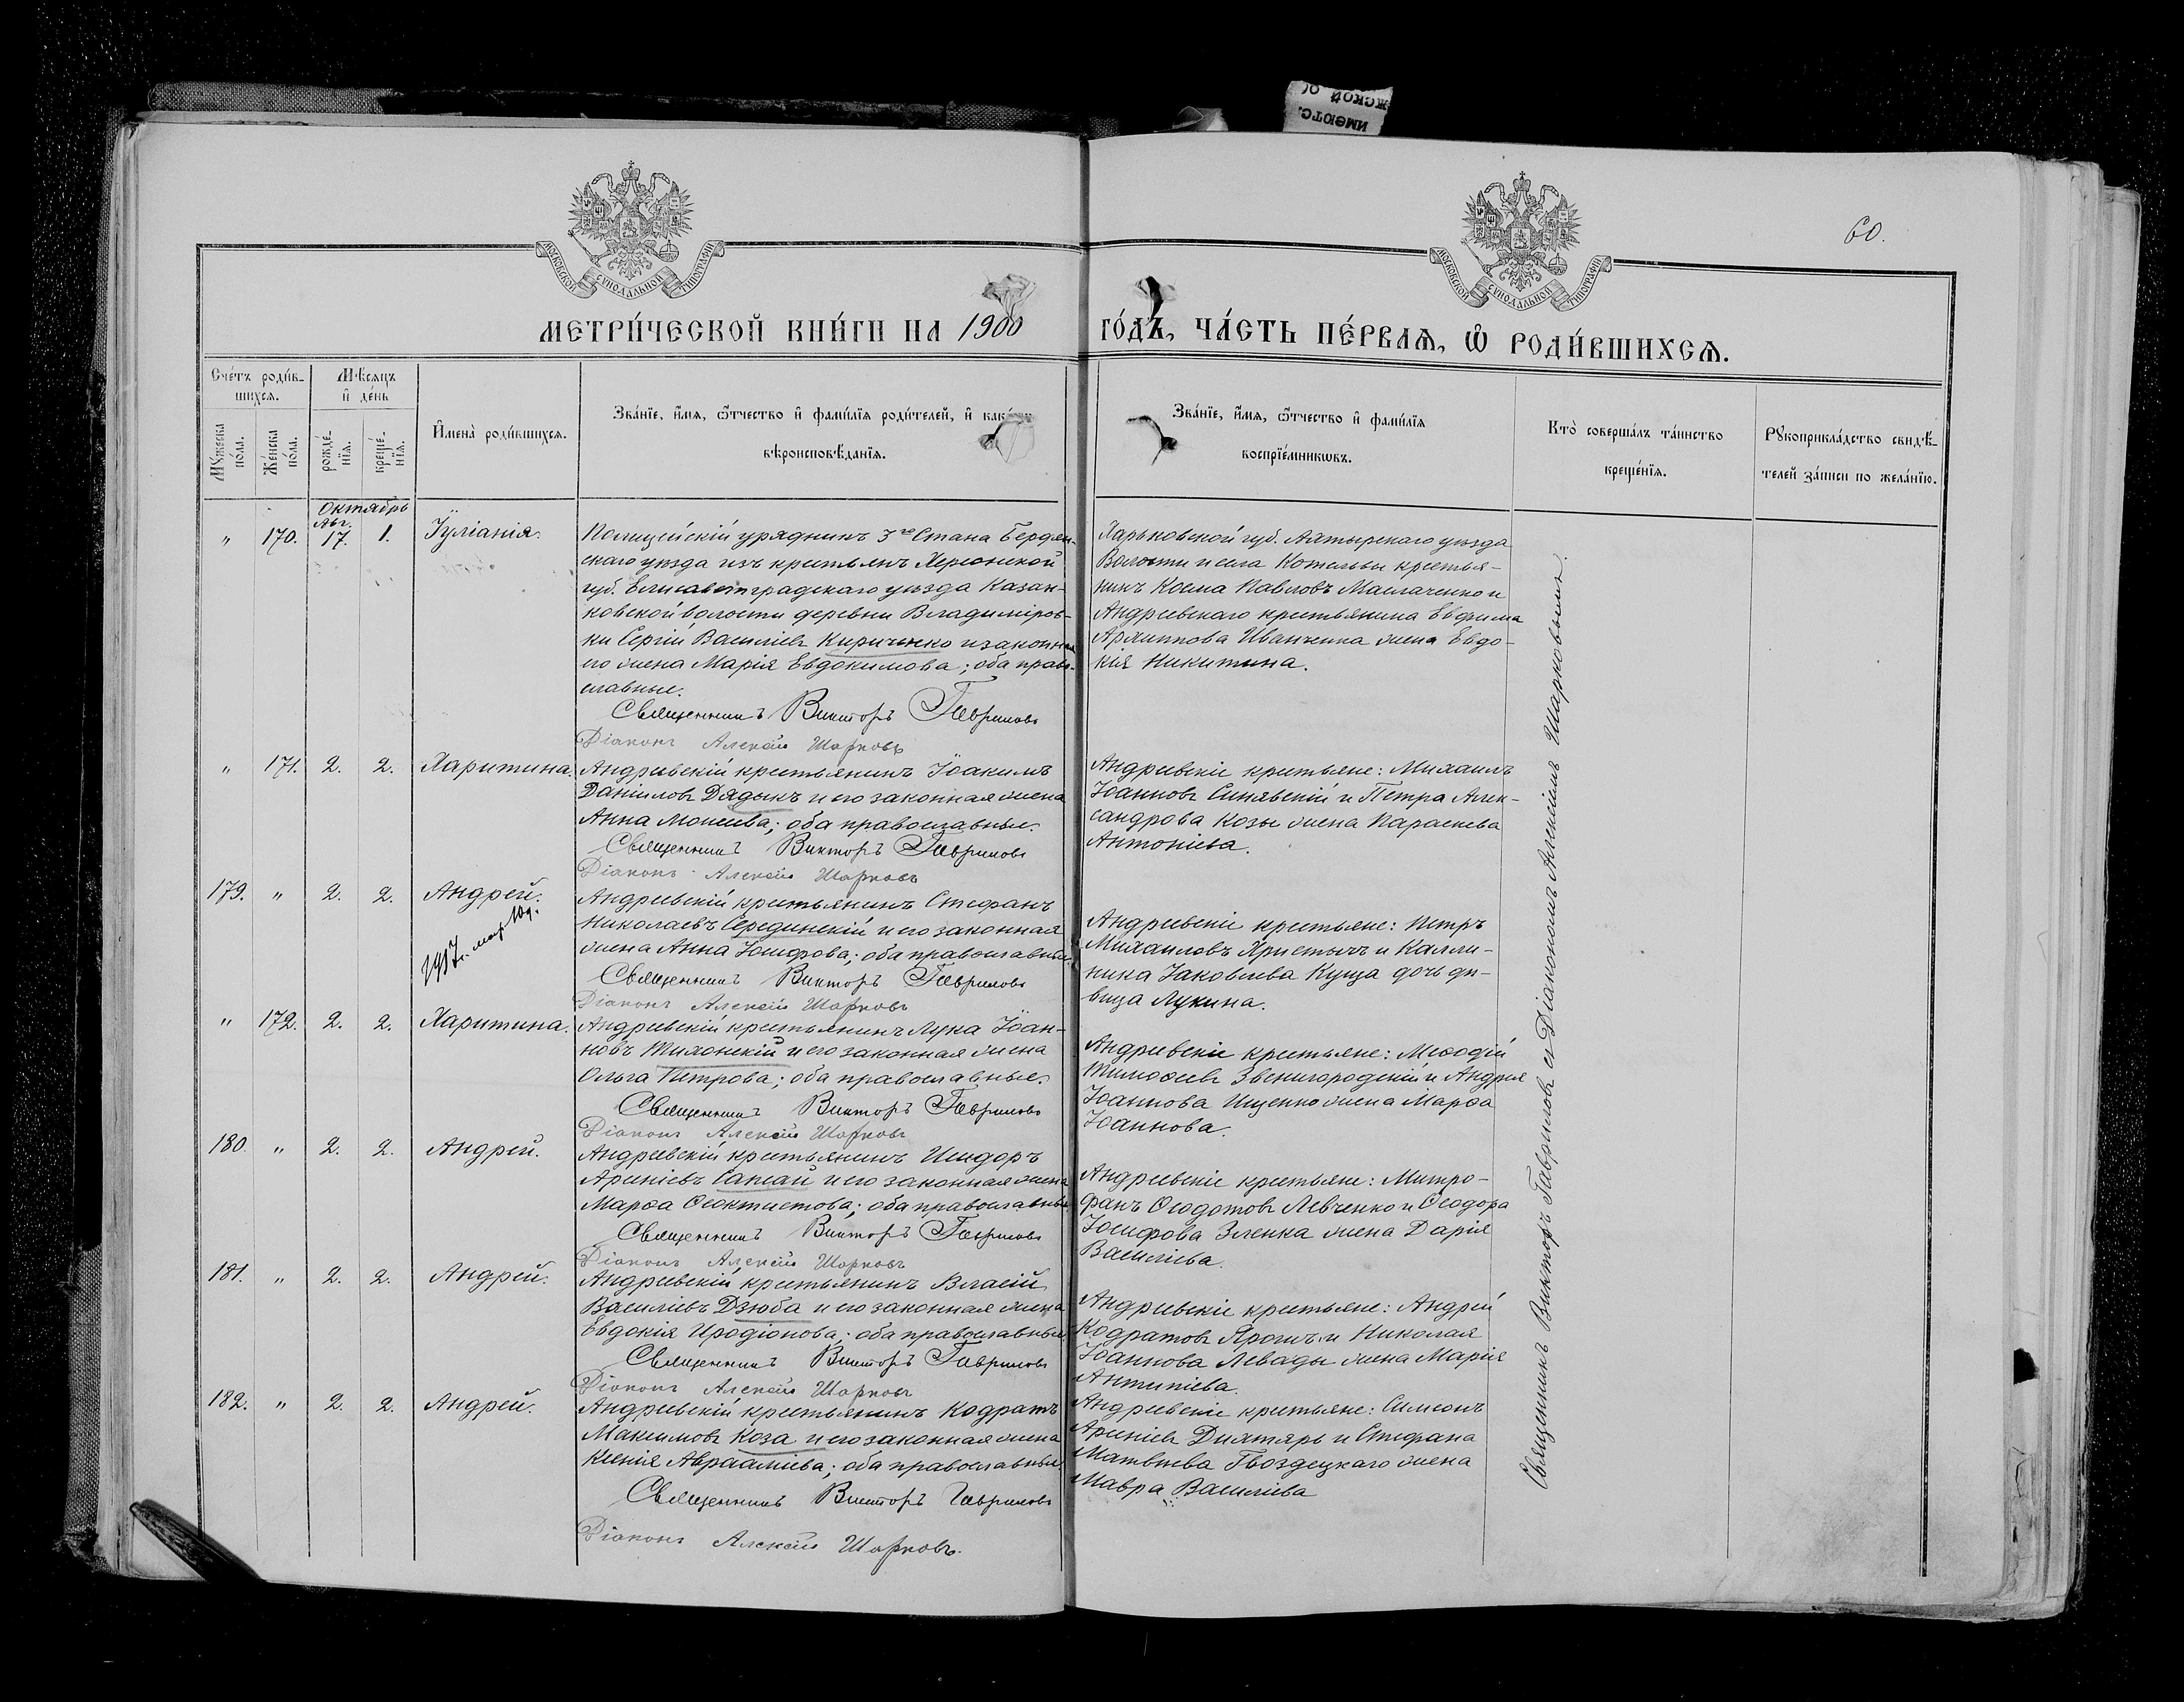 60.
МОСКОВСКОЙ СѴНОДАЛЬНОЙ ТИПОГРАФІИ
МОСКОВСКОЙ СѴНОДАЛЬНОЙ ТИПОГРАФІИ
МЕТРИ́ЧЕСКОЙ КНИ́ГИ НА 1900 ГО́ДЪ, ЧА́СТЬ ПЕ́РВАѦ, Ѡ҆ РОДИ́ВШИХСѦ.
Сче́тъ роди́в-
шихсѧ.
Мѣ́сѧцъ
и҆ де́нь
Мꙋ́жеска по́ла.
Же́нска по́ла.
рожде́-
нїѧ.
креще́-
нїѧ.
И҆мена̀ роди́вшихсѧ.
Зва́нїе, и҆́мѧ, ѻ҆́тчество и҆ фами́лїѧ роди́телей, и҆
вѣроисповѣ́данїѧ.
Зва́нїе, и҆́мѧ, ѻ҆́тчество и҆ фами́лїѧ
воспрїе́мникѡвъ.
Кто̀ соверша́лъ та́инство
креще́нїѧ.
Рꙋкоприкла́дство свидѣ́-
телей за́писи по жела́нїю.
Октябрь
„ 170. Авг. 17. 1. Іуліанія.
Полицейскій урядникъ 3го Стана Бердян-
скаго уѣзда изъ крестьянъ Херсонской
губ. Елисаветградскаго уѣзда Казан-
ковской волости деревни Владиміров-
ки Сергій Василіевъ Кириченко и законная
его жена Марія Евдокимова; оба право-
славные.
Священникъ Викторъ Гавриловъ
Діаконъ Алексій Шарковъ
Харьковской губ. Ахтырскаго уѣзда
Волости и села Котельвы крестья-
нинъ Косма Павловъ Маслаченко и
Андреевскаго крестьянина Евфима
Архиппова Иванченка жена Евдо-
кія Никитина.
„ 171. 2. 2. Харитина.
Андреевскій крестьянинъ Іоакимъ
Даніиловъ Дядыкъ и его законная жена
Анна Моисеева; оба православные.
Священникъ Викторъ Гавриловъ
Діаконъ Алексій Шарковъ
Андреевскіе крестьяне: Михаилъ
Іоанновъ Синявскій и Петра Алек-
сандрова Козы жена Параскева
Антоніева.
179. „ 2. 2. Андрей.
1917г. мар. 10д.
Андреевскій крестьянинъ Стефанъ
Николаевъ Серединскій и его законная
жена Анна Іосифова; оба православные.
Священникъ Викторъ Гавриловъ
Діаконъ Алексій Шарковъ
Андреевскіе крестьяне: Петръ
Михаиловъ Христычъ и Калли-
ника Іаковлева Куща дочь дѣ-
вица Лукина.
„ 172. 2. 2. Харитина.
Андреевскій крестьянинъ Лука Іоан-
новъ Тихонскій и его законная жена
Ольга Петрова; оба православные.
Священникъ Викторъ Гавриловъ
Діаконъ Алексій Шарковъ
Андреевскіе крестьяне: Меѳодій
Тимоѳеевъ Звенигородскій и Андрея
Іоаннова Ищенко жена Марѳа
Іоаннова.
180. „ 2. 2. Андрей.
Андреевскій крестьянинъ Исидоръ
Арсеніевъ Сапсай и его законная жена
Марѳа Ѳеоктистова; оба православные.
Священникъ Викторъ Гавриловъ
Діаконъ Алексій Шарковъ
Андреевскіе крестьяне: Митро-
фанъ Ѳеодотовъ Левченко и Ѳеодора
Іосифова Зленка жена Дарія
Василіева.
181. „ 2. 2. Андрей.
Андреевскій крестьянинъ Власій
Василіевъ Дзюба и его законная жена
Евдокія Иродіонова; оба православные
Священникъ Викторъ Гавриловъ
Діаконъ Алексій Шарковъ
Андреевскіе крестьяне: Андрей
Кодратовъ и Николая
Іоаннова Левады жена Марія
Антипіева.
182. „ 2. 2. Андрей.
Андреевскій крестьянинъ Кодратъ
Максимовъ Коза и его законная жена
Ксенія Авраамиева; оба православные.
Священникъ Викторъ Гавриловъ
Діаконъ Алексій Шарковъ.
Андреевскіе крестьяне: Симеонъ
Арсеніевъ Дихтярь и Стефана
Матвѣева Гвоздецкаго жена
Мавра Василіева
Священникъ Викторъ Гавриловъ съ Діакономъ Алексіемъ Шарковымъ.